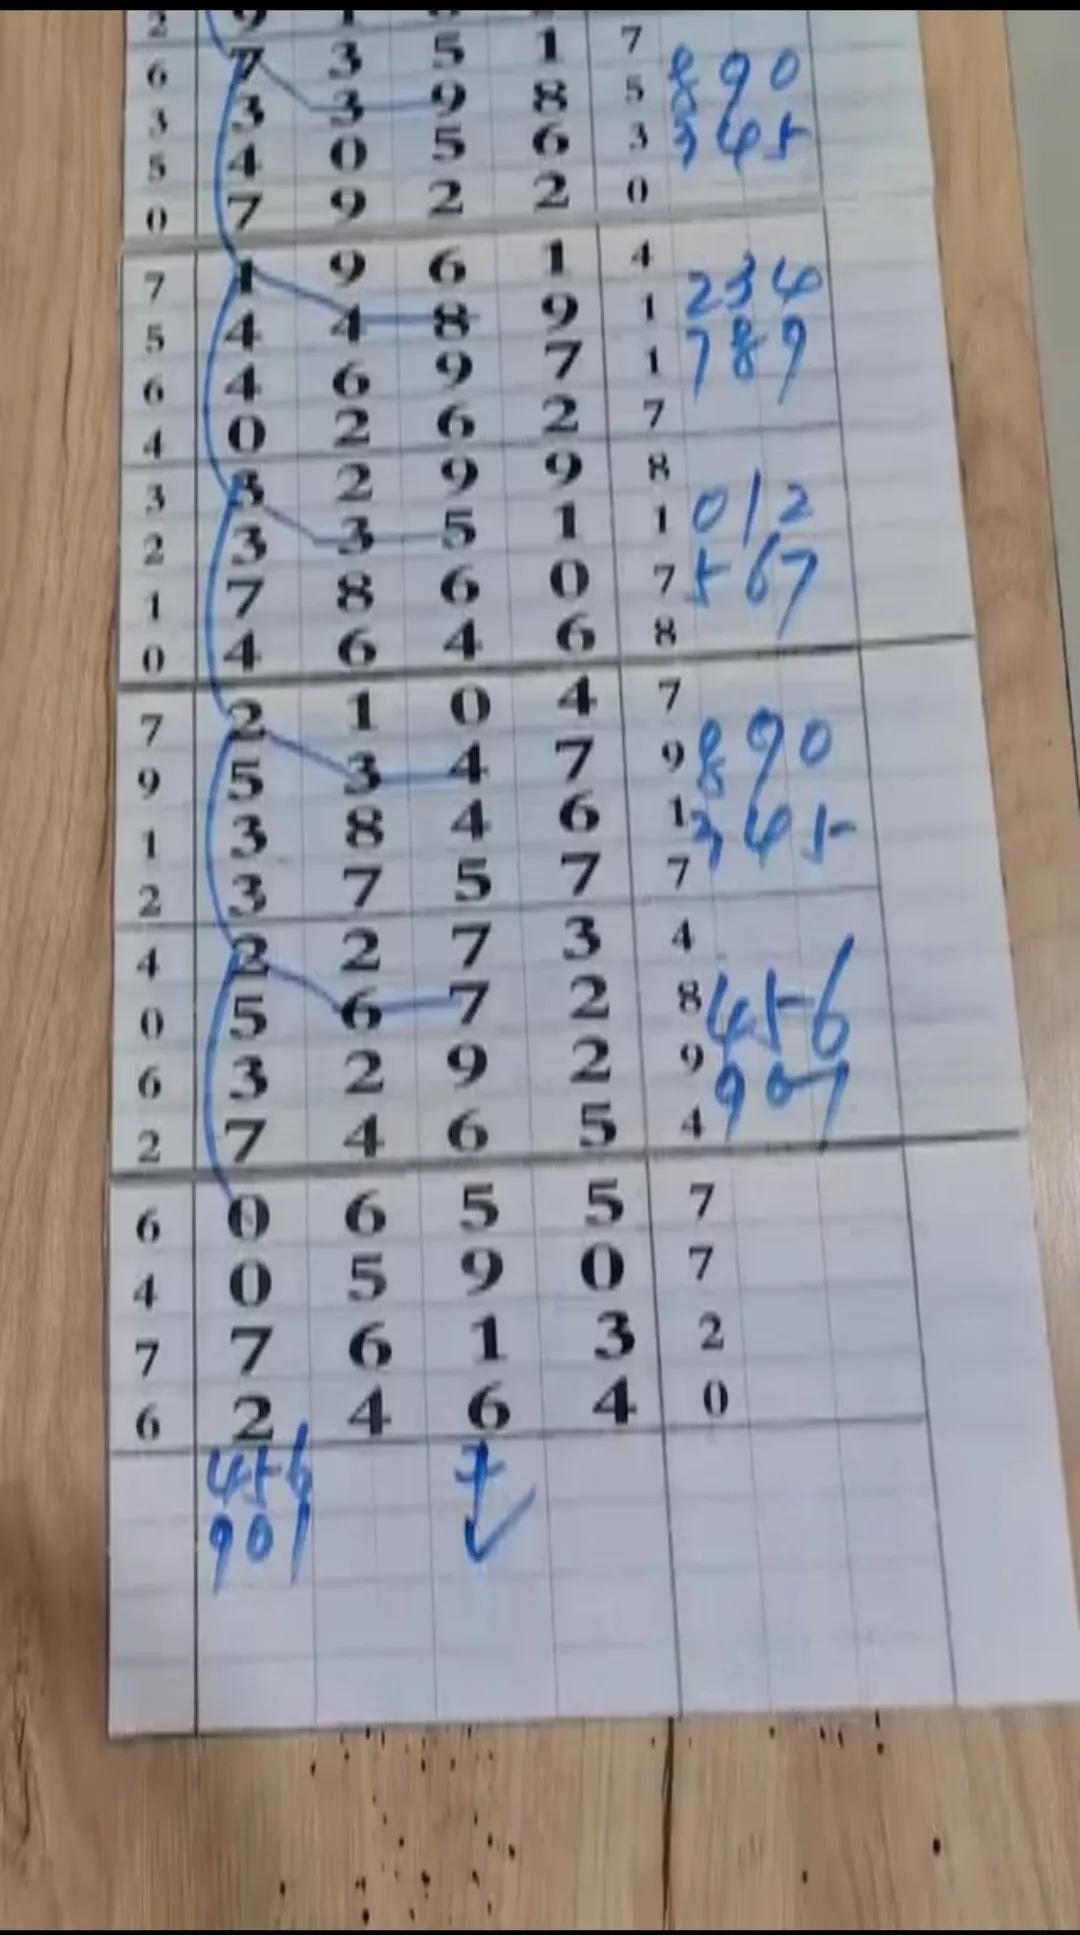 2 9
6 7 3 5 1 7 8 9 0
3 3 3 9 8 5
5 4 0 5 6 3 3 4 5
0 7 9 2 2 0
7 1 9 6 1 4
5 4 4 8 9 1 2 3 4
6 4 6 9 7 1 7 8 9
4 0 2 6 2 7
3 3 2 9 9 8
2 3 3 5 1 1 0 1 2
1 7 8 6 0 7 5 6 7
0 4 6 4 6 8
7 2 1 0 4 7
9 5 3 4 7 9 8 9 0
1 3 8 4 6 1 3 4 5
2 3 7 5 7 7
4 2 2 7 3 4
0 5 6 7 2 8 4 5 6
6 3 2 9 2 9 9 0 1
2 7 4 6 5 4
6 0 6 5 5 7
4 0 5 9 0 7
7 7 6 1 3 2
6 2 4 6 4 0
4 5 6
9 0 1